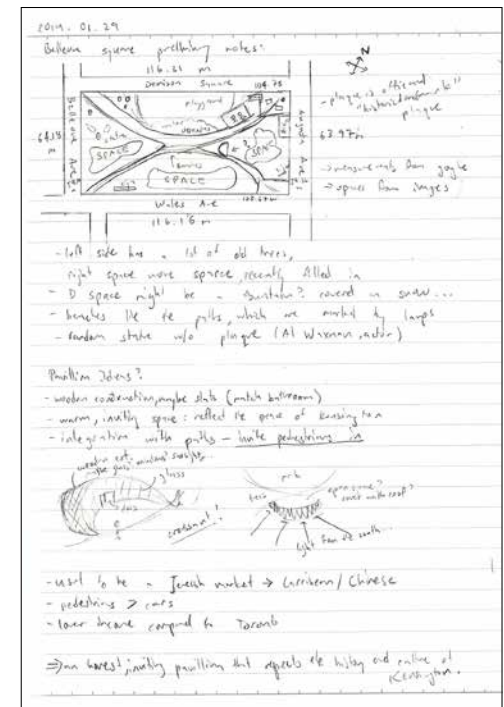 2019. 01. 29
Bellevue square preliminary notes:
116.31 m
Denison Square
104.78
N
Bellevue Ave
64.18 m
playground
SPACE
SPACE
SPACE
benches
Augusta Ave
63.97m
Wales Ave
116.16 m
- plaque is official
plaque
→ measurements from google
→ spaces from images
- left side has a lot of old trees,
right space more sparse, recently filled in
- D space might be a fountain? covered in snow...
- benches line the paths, which are marked by lamps
- random statue w/o plaque (Al Waxman, actor)
Pavillion Ideas?
- wooden construction, maybe slats (match bathroom)
- warm, inviting space: reflect the of kensington
- integration with paths - invite pedestrians in
wooden ext.
glass
crossaint?
park
light from the south...
- used to be a Jewish market → Carribean / Chinese
- pedestrians > cars
- lower income compared to Toronto
⇒ an honest, inviting pavillion that respects the history and culture of
Kensington.